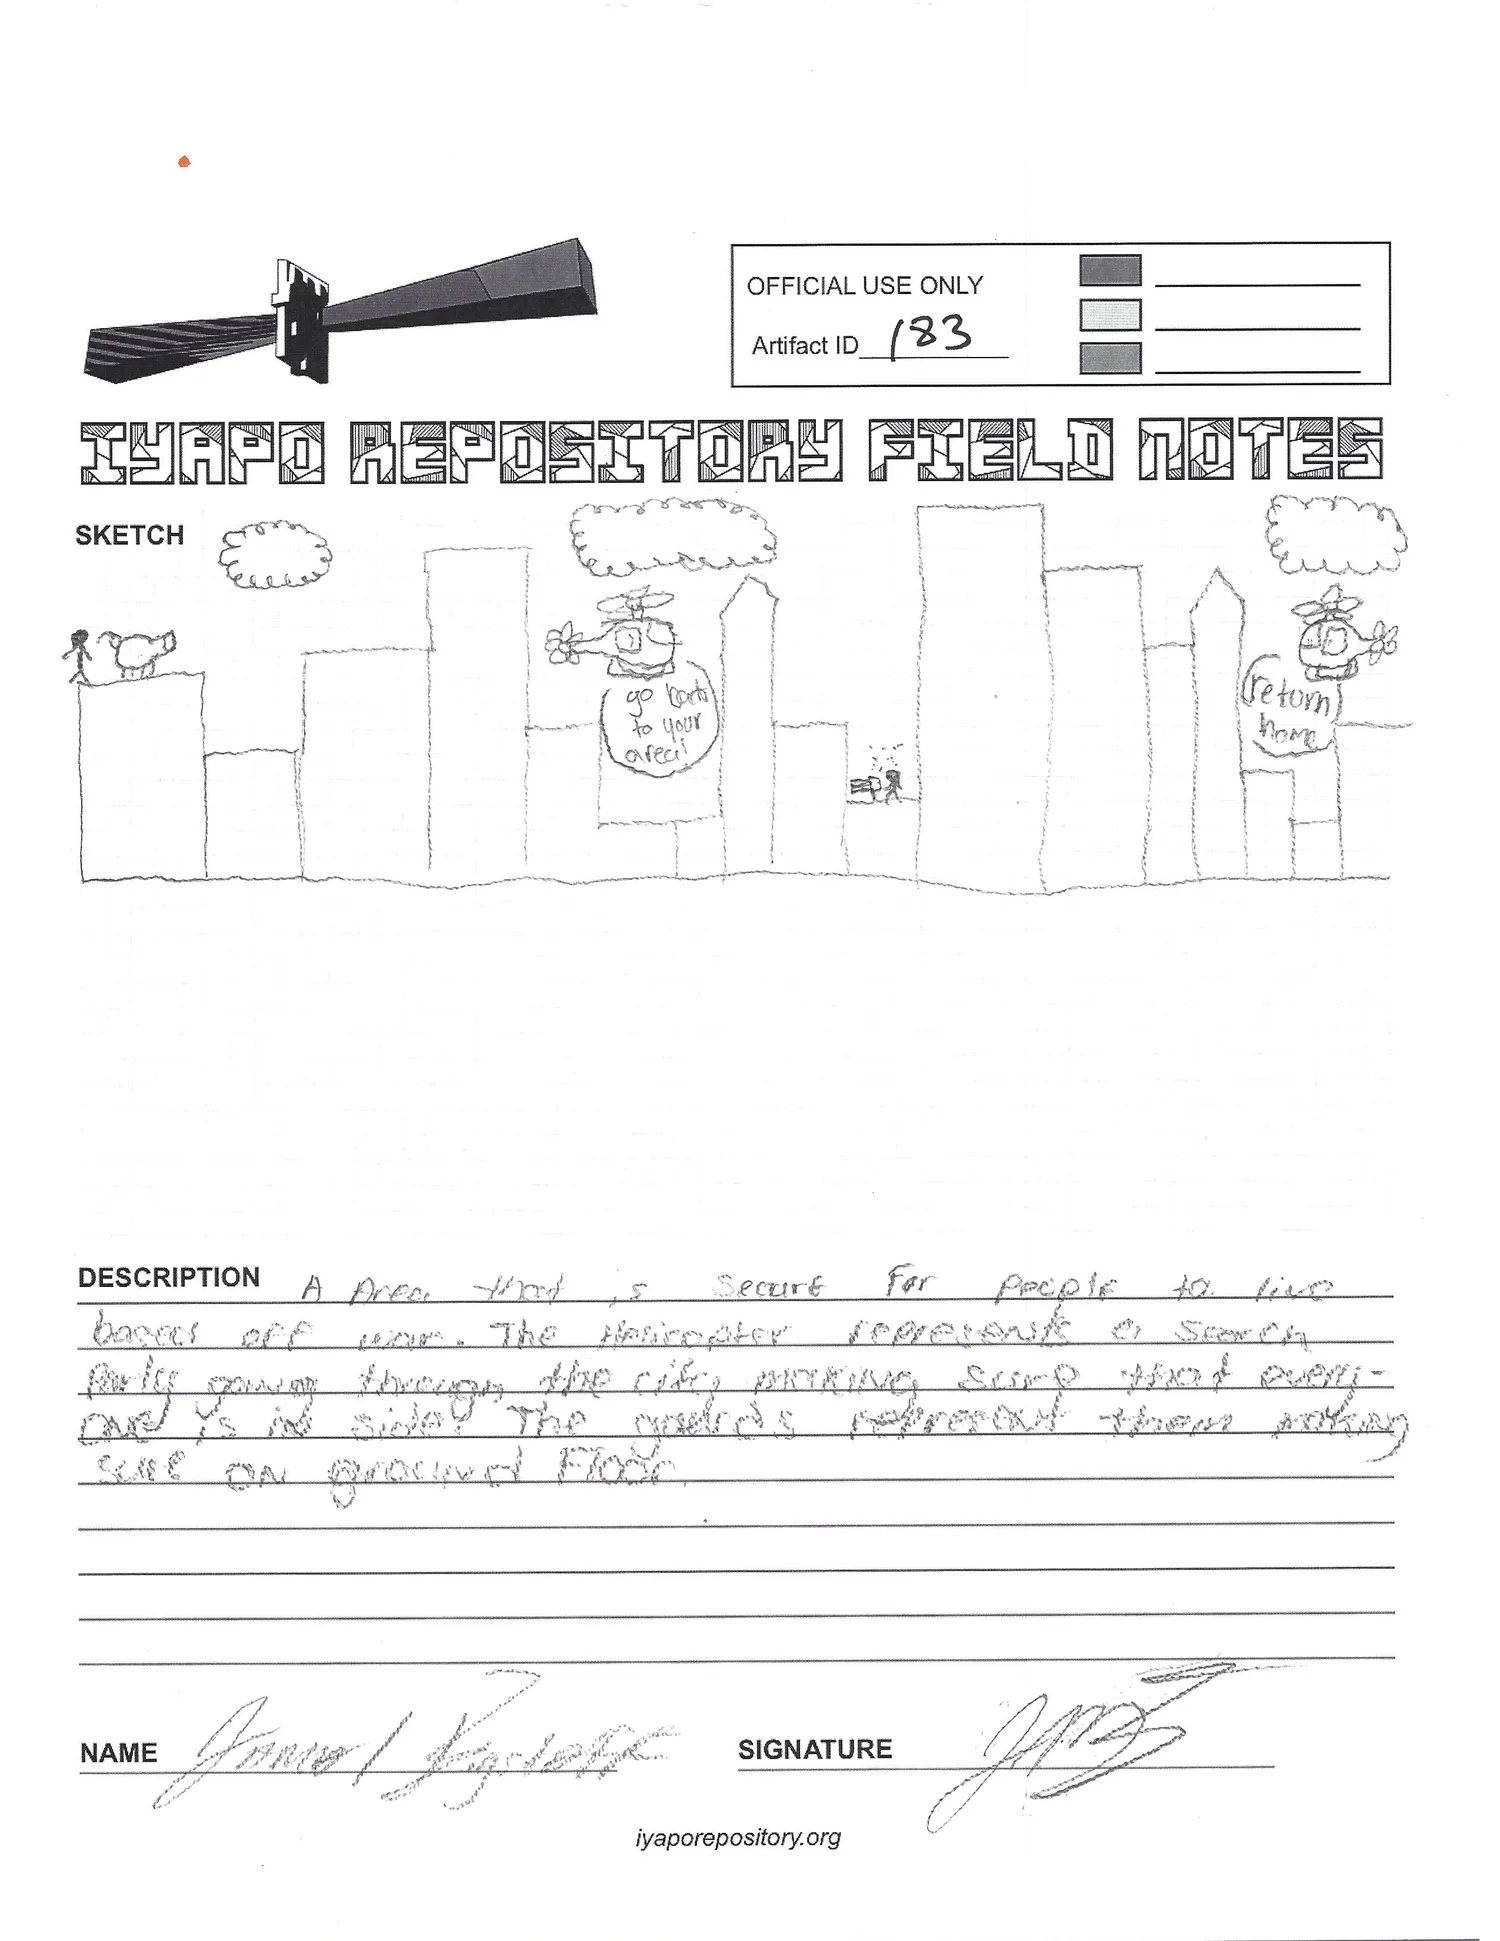 OFFICIAL USE ONLY
Artifact ID 183
IYAPO REPOSITORY FIELD NOTES
SKETCH
go back
to your
area!
return
home
DESCRIPTION A Area that is secure For people to live
based off war. The Helicopter represents a search
Party going through the city making sure that every-
one is in side. The guards represent them making
sure on ground Floor.
NAME
SIGNATURE
iyaporepository.org